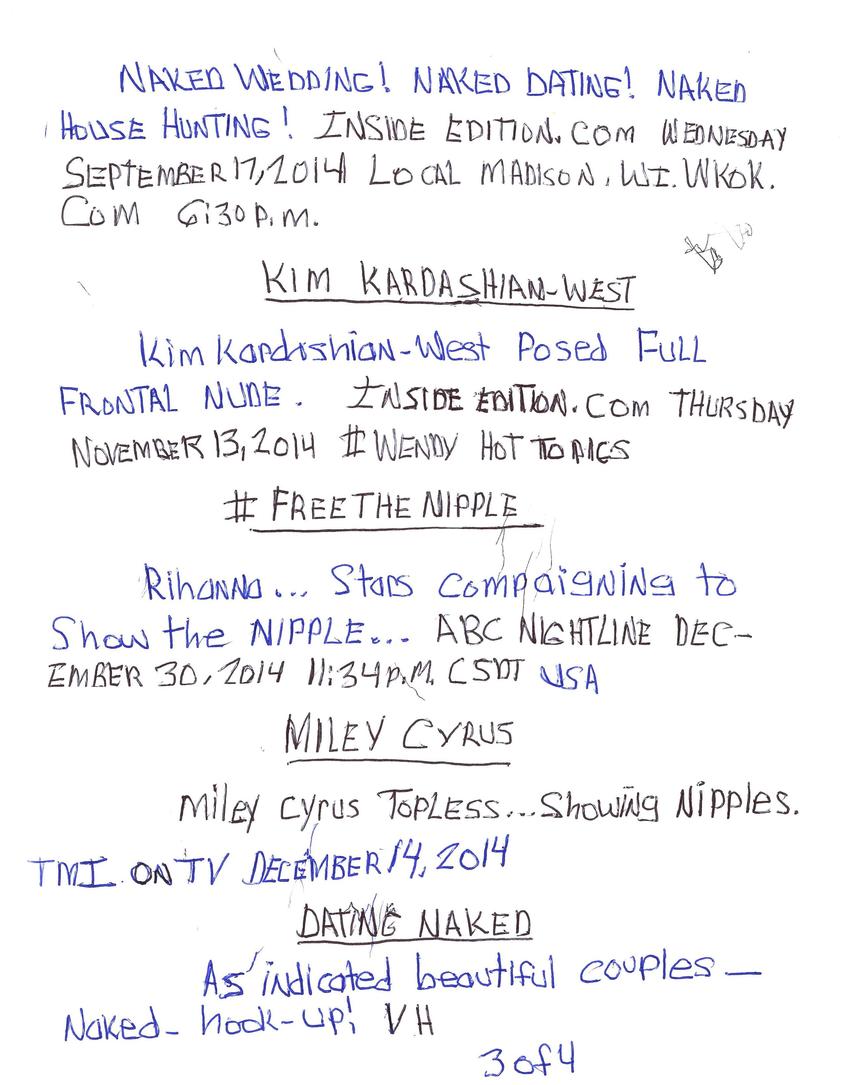 NAKED WEDDING! NAKED DATING! NAKED
HOUSE HUNTING! INSIDE EDITION.COM WEDNESDAY
SEPTEMBER 17, 2014 LOCAL MADISON, WI. WKOK.
COM 6:30 P.M.
KIM KARDASHIAN-WEST
Kim Kardashian-West Posed FULL
FRONTAL NUDE. INSIDE EDITION.COM THURSDAY
NOVEMBER 13, 2014 #WENDY HOT TOPICS
# FREE THE NIPPLE
Rihanna... Stars compaigning to
Show the NIPPLE... ABC NIGHTLINE DEC-
EMBER 30, 2014 11:34 P.M. CSDT USA
MILEY CYRUS
Miley Cyrus TOPLESS...Showing Nipples.
TMI ON TV DECEMBER 14, 2014
DATING NAKED
As indicated beautiful couples —
Naked- hook-up! VH
3 of 4